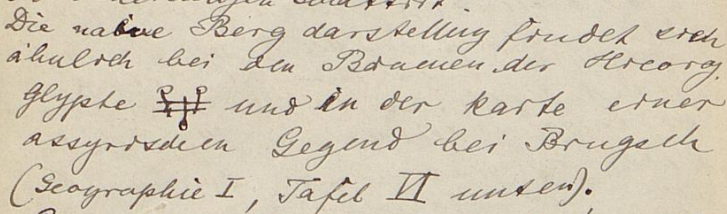 Die naive Berg darstellung findet sich
ähnlich bei den Bäumen der Hierog
glyphe und in der Karte einer
assyrischen Gegend bei Brugsch
(Geographie I, Tafel VI unten).